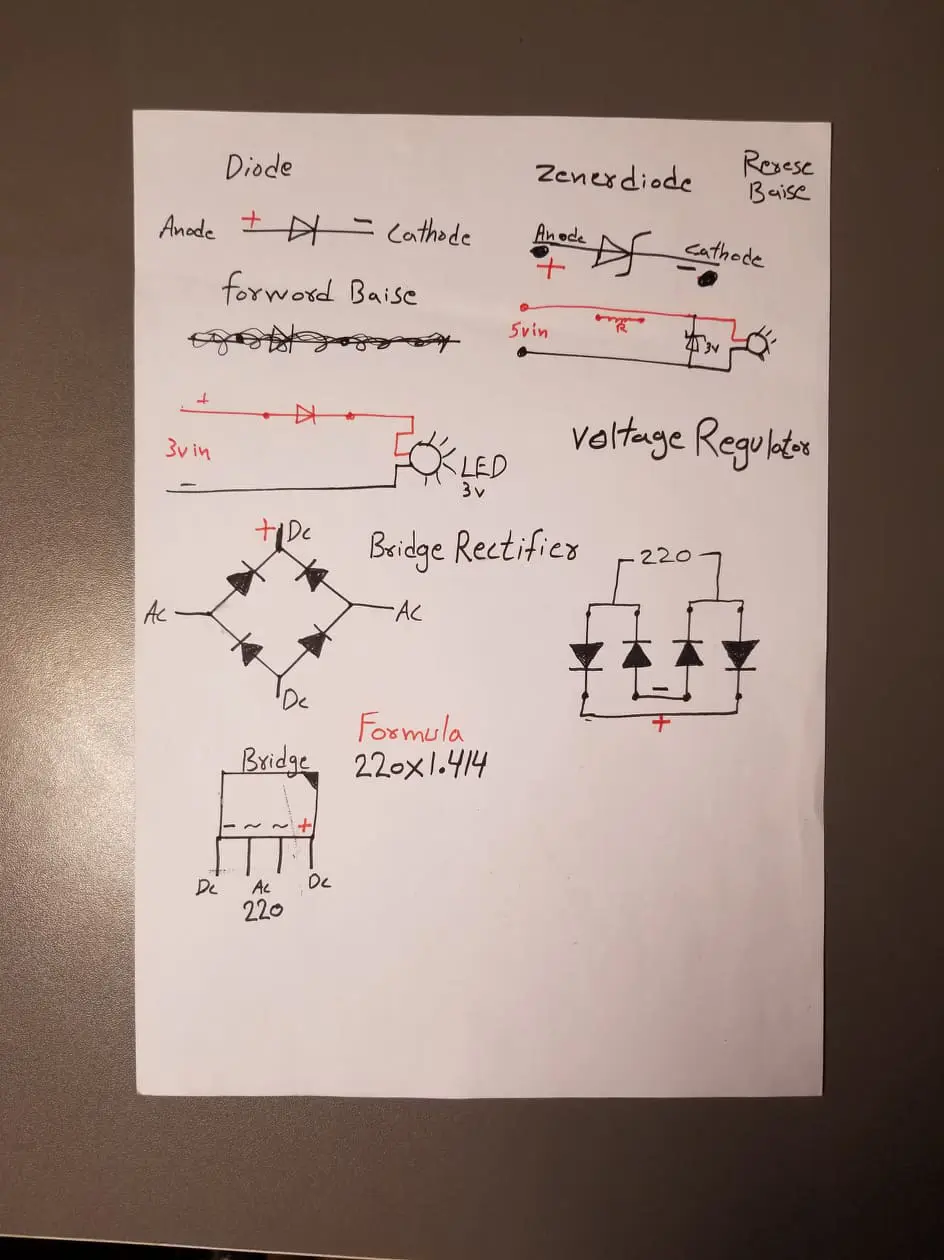 Diode
Anode + − Cathode
forword Baise
+
3v in
−
LED
3v
Zenerdiode
Rerese
Baise
Anode
Cathode
+ −
5v in
R
3v
Voltage Regulator
Bridge Rectifier
+ Dc
Ac
Ac
Dc
220
−
+
Formula
220x1.414
Bridge
− ~ ~ +
Dc Ac Dc
220